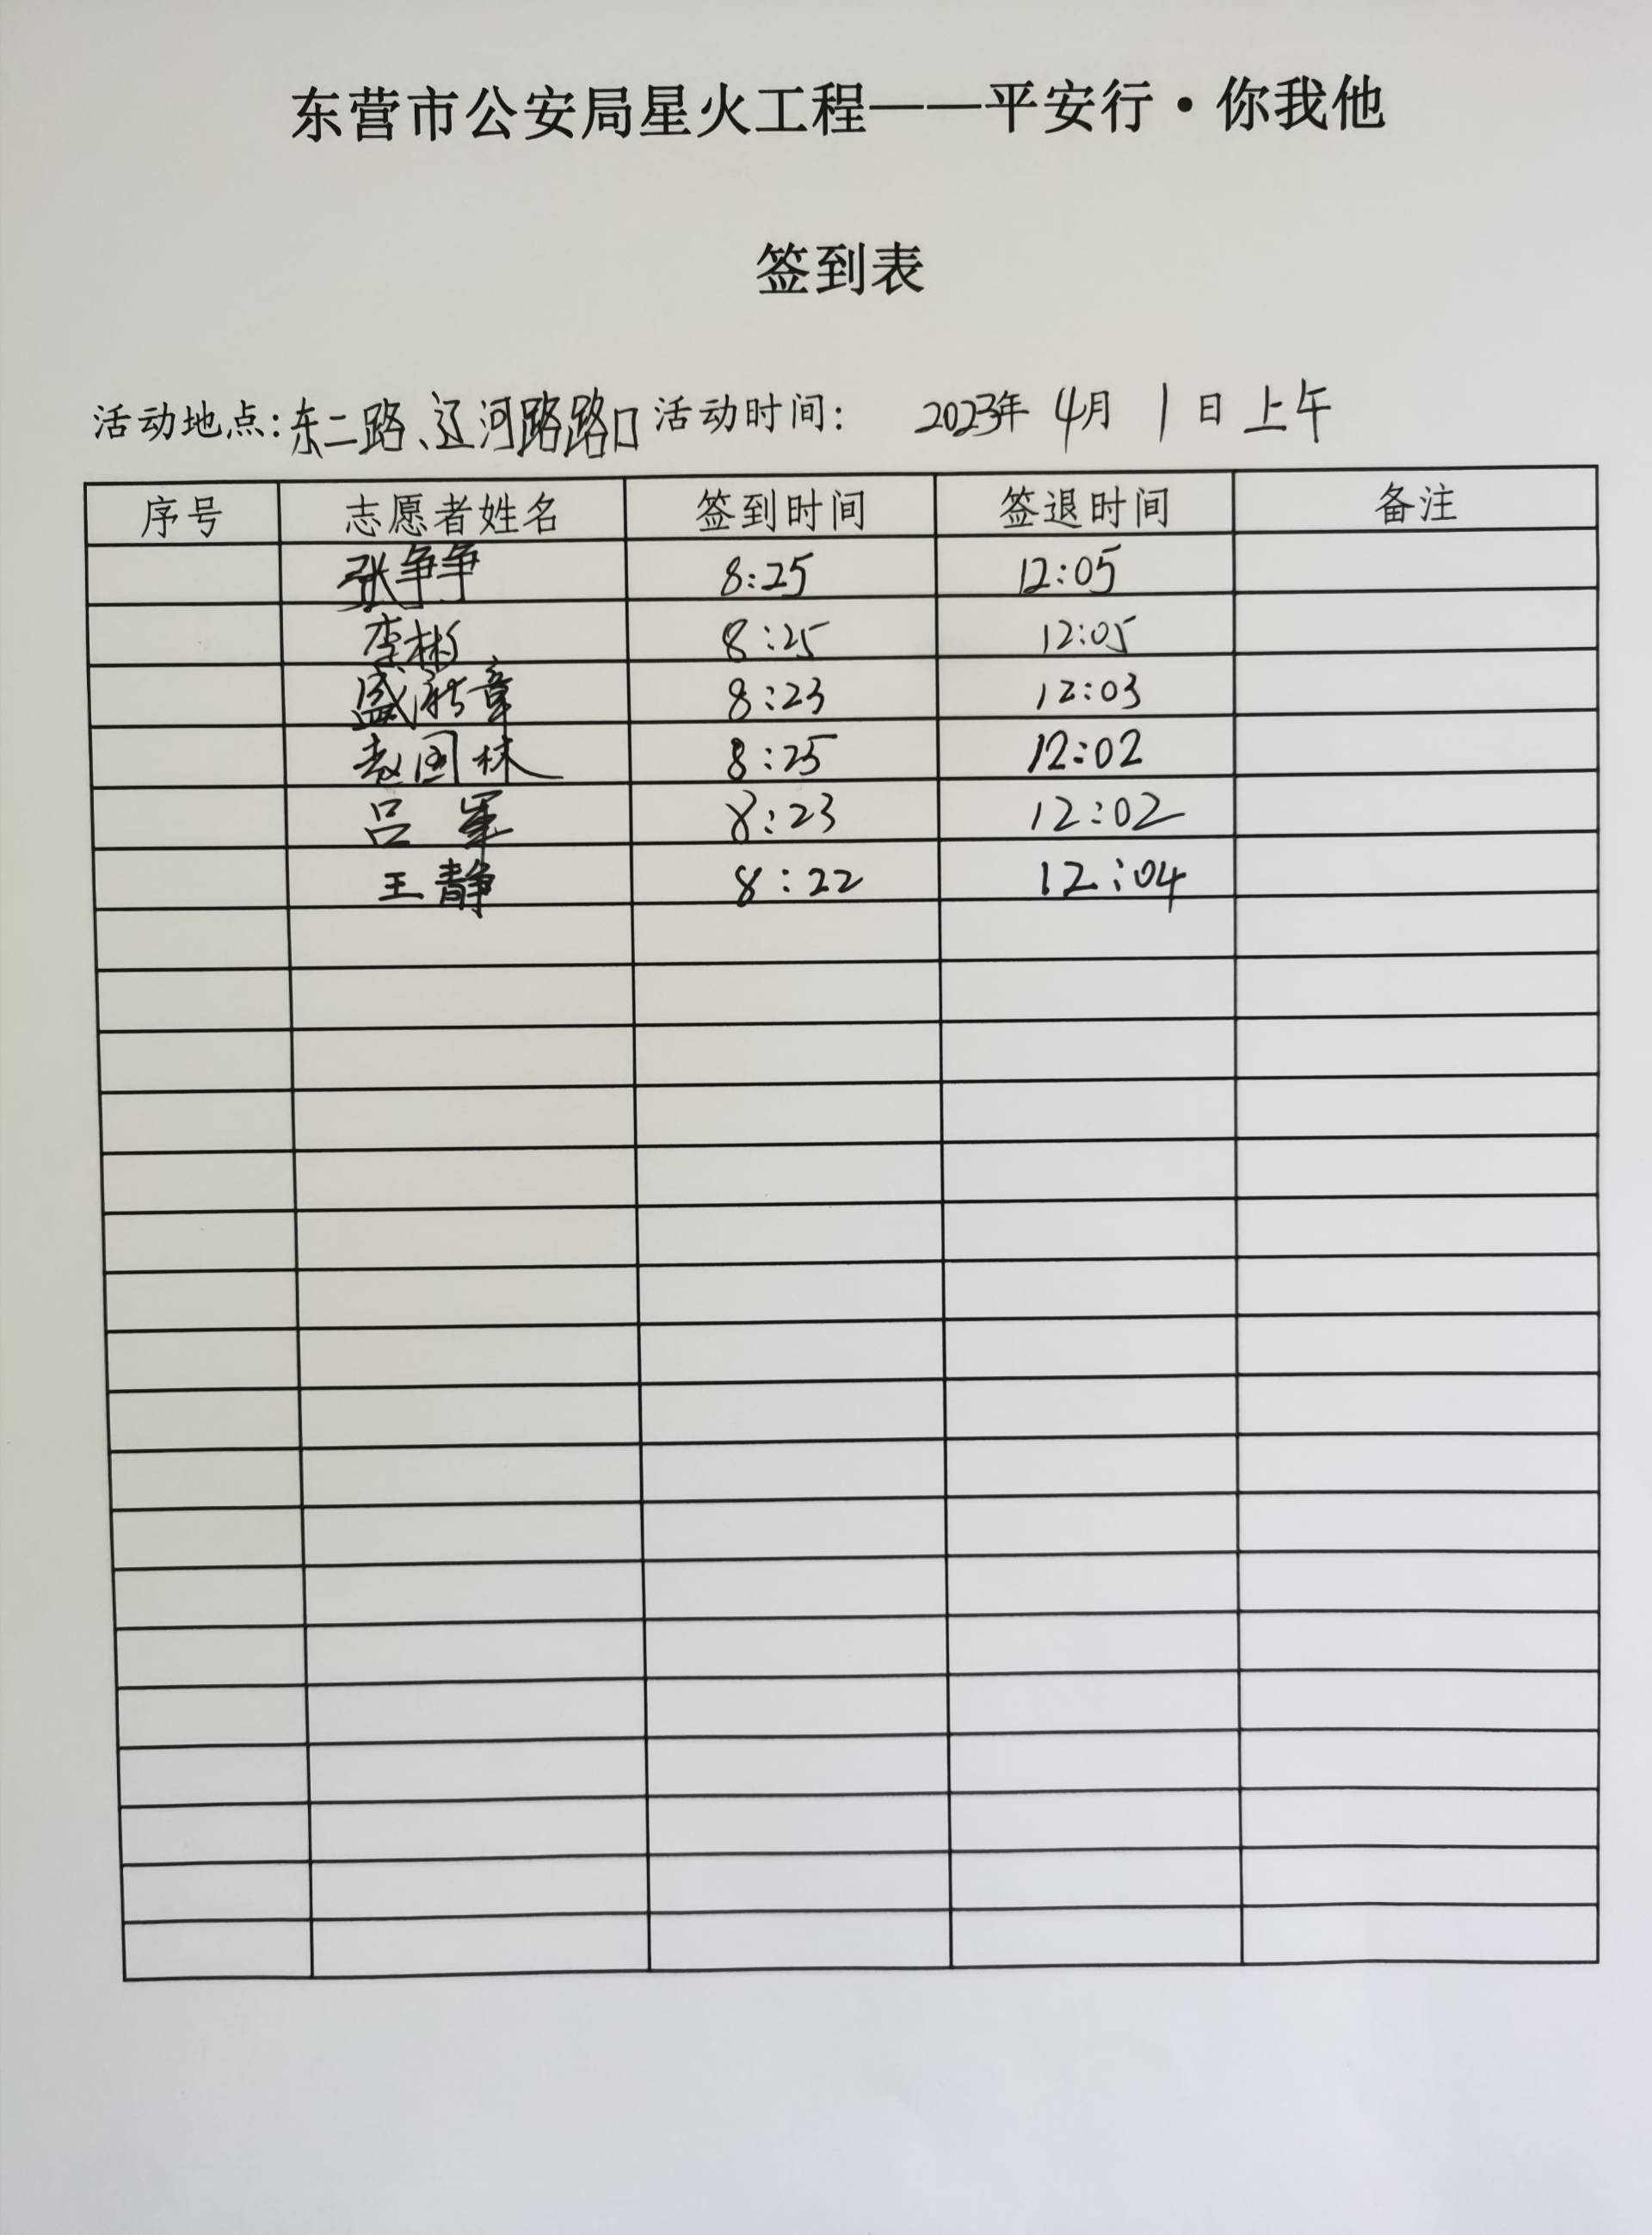 东营市公安局星火工程——平安行·你我他
签到表
活动地点:东二路、辽河路路口 活动时间: 2023年 4月 1日 上午
序号 志愿者姓名 签到时间 签退时间 备注
张争争 8:25 12:05
李彬 8:25 12:05
盛 章 8:23 12:03
国林 8:25 12:02
吕军 8:23 12:02
王静 8:22 12:04